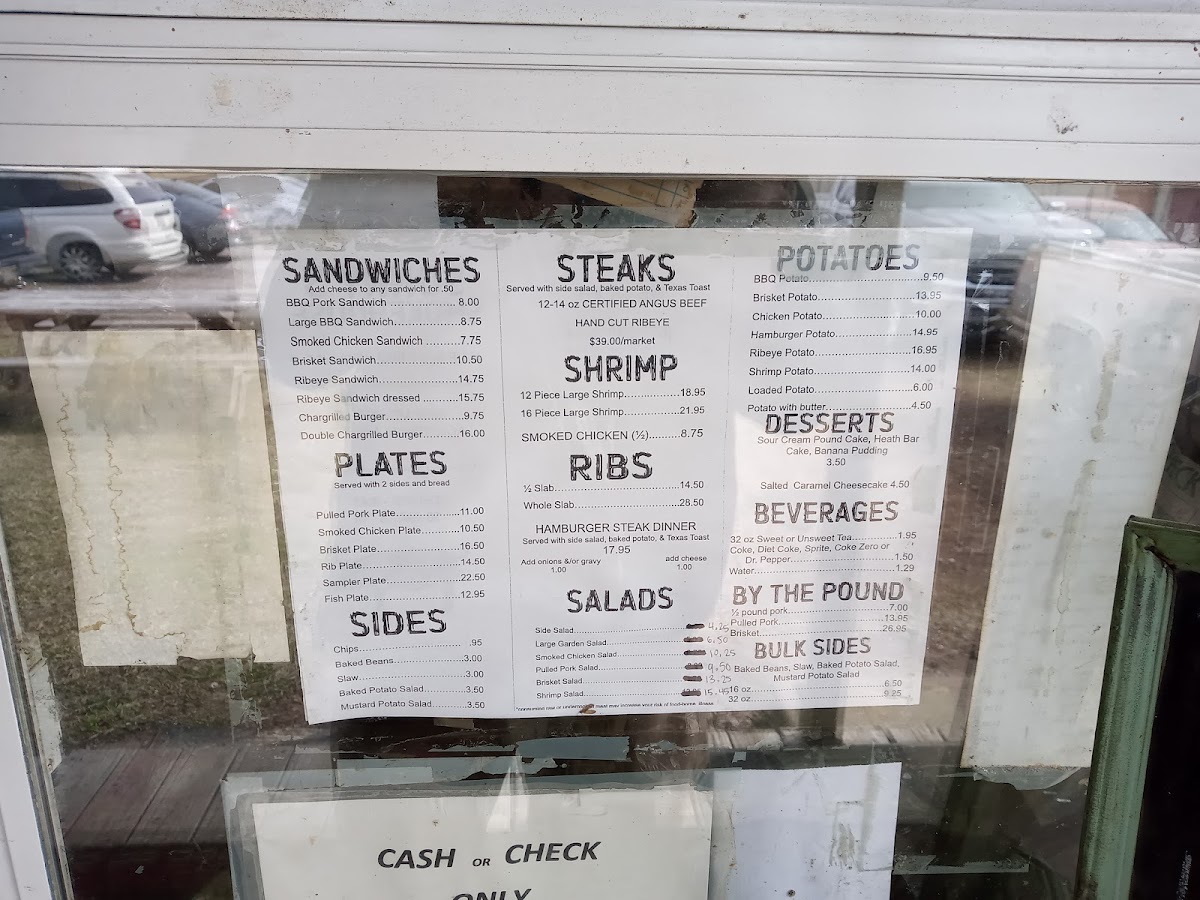 SANDWICHES
Add cheese to any sandwich for .50
BBQ Pork Sandwich .................... 8.00
Large BBQ Sandwich....................8.75
Smoked Chicken Sandwich ..........7.75
Brisket Sandwich........................10.50
Ribeye Sandwich........................14.75
Ribeye Sandwich dressed ..........15.75
Chargrilled Burger........................9.75
Double Chargrilled Burger...........16.00
PLATES
Served with 2 sides and bread
Pulled Pork Plate...................11.00
Smoked Chicken Plate...........10.50
Brisket Plate.........................16.50
Rib Plate..............................14.50
Sampler Plate.......................22.50
Fish Plate............................12.95
SIDES
Chips................................ .95
Baked Beans......................3.00
Slaw..................................3.00
Baked Potato Salad.............3.50
Mustard Potato Salad..........3.50
STEAKS
Served with side salad, baked potato, & Texas Toast
12-14 oz CERTIFIED ANGUS BEEF
HAND CUT RIBEYE
$39.00/market
SHRIMP
12 Piece Large Shrimp.................18.95
16 Piece Large Shrimp.................21.95
SMOKED CHICKEN (½)..........8.75
RIBS
½ Slab......................................14.50
Whole Slab................................28.50
HAMBURGER STEAK DINNER
Served with side salad, baked potato, & Texas Toast
17.95
Add onions &/or gravy add cheese
1.00 1.00
SALADS
Side Salad................................ 4.25
Large Garden Salad..................... 6.50
Smoked Chicken Salad.................. 10.25
Pulled Pork Salad........................ 9.50
Brisket Salad.............................. 13.25
Shrimp Salad.............................. 15.45
POTATOES
BBQ Potato..................................9.50
Brisket Potato..............................13.95
Chicken Potato............................10.00
Hamburger Potato........................14.95
Ribeye Potato..............................16.95
Shrimp Potato..............................14.00
Loaded Potato..............................6.00
Potato with butter..........................4.50
DESSERTS
Sour Cream Pound Cake, Heath Bar
Cake, Banana Pudding
3.50
Salted Caramel Cheesecake 4.50
BEVERAGES
32 oz Sweet or Unsweet Tea..............1.95
Coke, Diet Coke, Sprite, Coke Zero or
Dr. Pepper..............................1.50
Water..........................................1.29
BY THE POUND
½ pound pork..............................7.00
Pulled Pork................................13.95
Brisket......................................26.95
BULK SIDES
Baked Beans, Slaw, Baked Potato Salad,
Mustard Potato Salad
16 oz........................................6.50
32 oz........................................9.25
CASH OR CHECK
ONLY